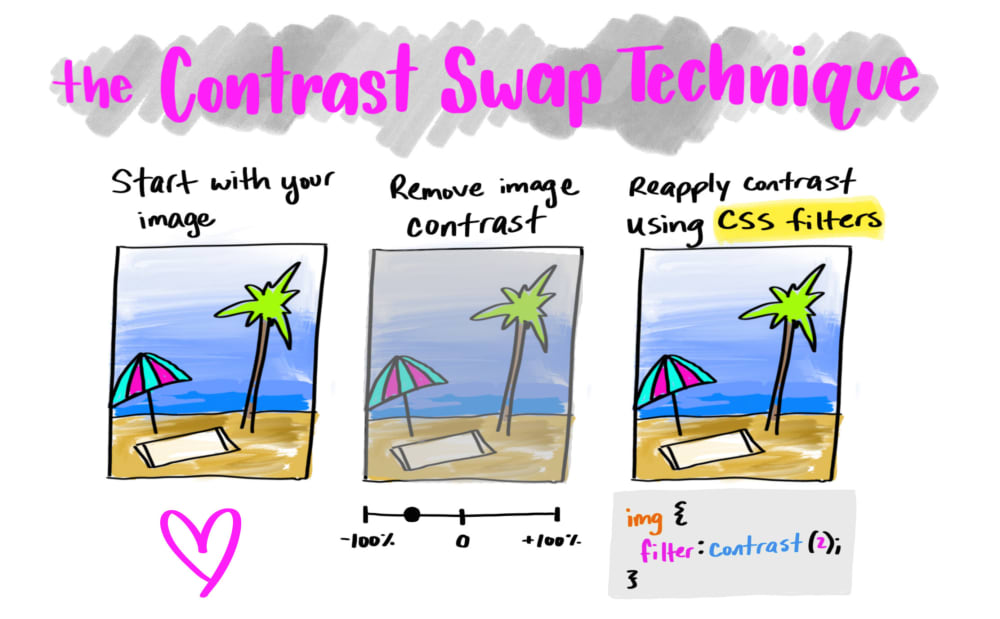 the Contrast Swap Technique
Start with your
image
Remove image
contrast
Reapply contrast
using CSS filters
-100%
0
+100%
img {
filter: contrast (2);
}